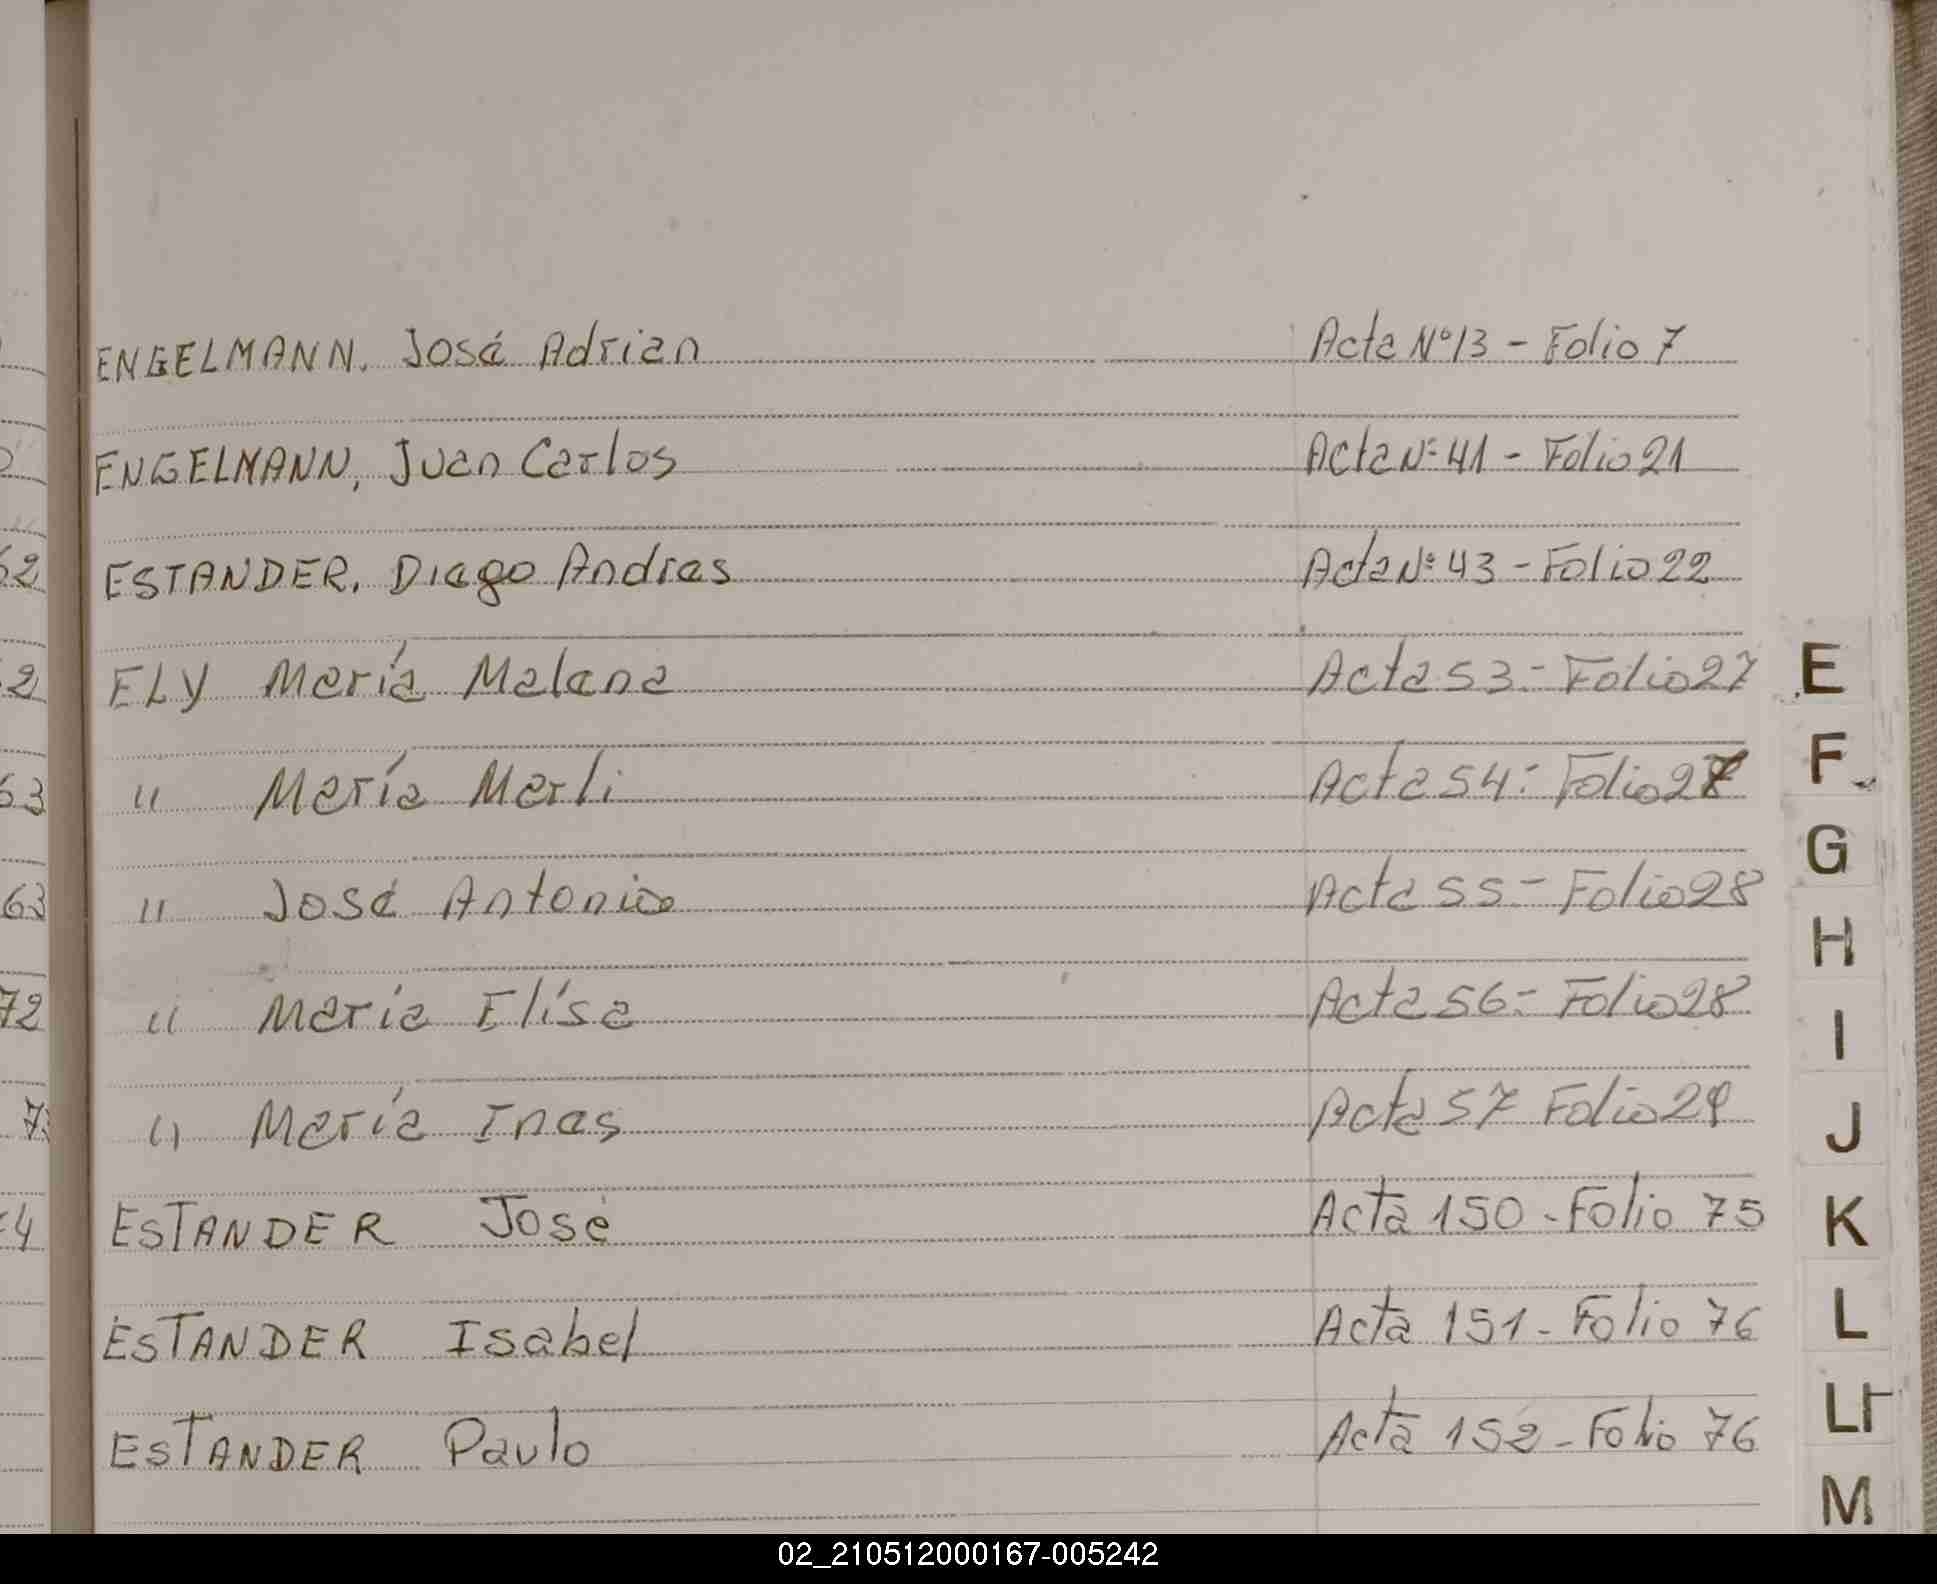 ENGELMANN, José Adrian Acta Nº13 - Folio 7
ENGELMANN, Juan Carlos Acta Nº 41 - Folio 21
62 ESTANDER, Diego Andres Acta Nº 43 - Folio 22
2 ELY María Malena Acta 53 - Folio 27
63 " María Merli Acta 54 - Folio 27
63 " José Antonio Acta 55 - Folio 28
72 " María Elísa Acta 56 - Folio 28
7 " María Ines Acta 57 Folio 29
4 ESTANDER José Acta 150 - Folio 75
ESTANDER Isabel Acta 151 - Folio 76
ESTANDER Paulo Acta 152 - Folio 76
E
F
G
H
I
J
K
L
Ll
M
02_210512000167-005242